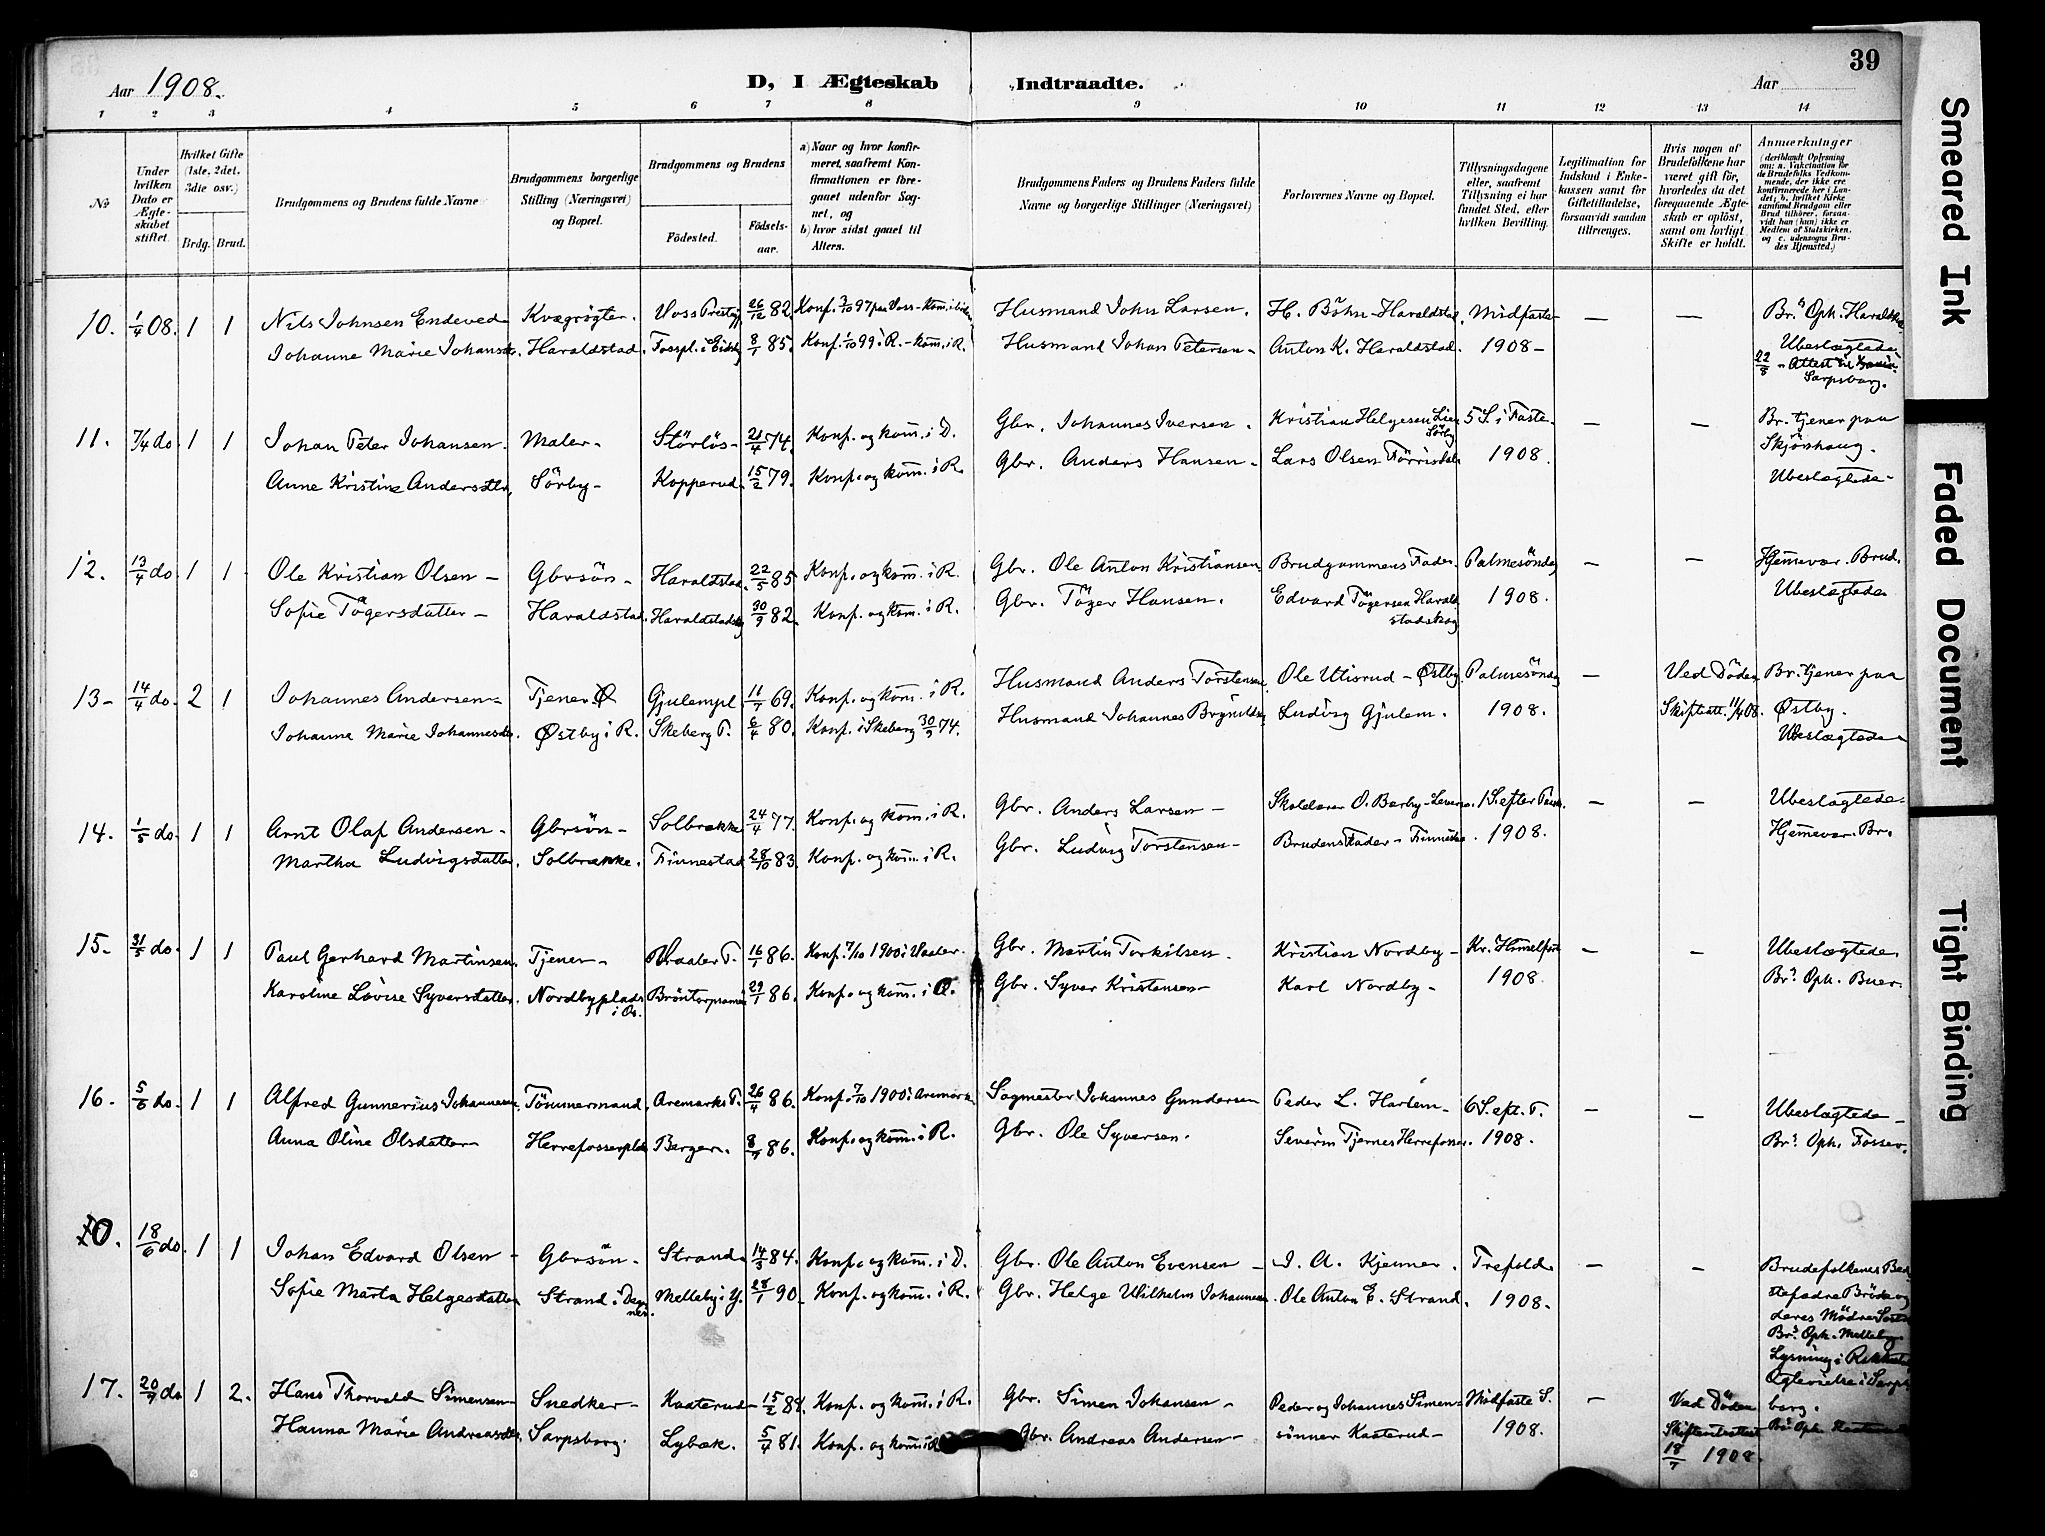 39
Aar 1908.
D, I Ægteskab Indtraadte.
Aar
1 2 3 4 5 6 7 8 9 10 11 12 13 14
No
Under hvilken Dato er Ægteskabet stiftet.
Hvilket Gifte (1ste, 2det, 3die osv.)
Brdg. Brud.
Brudgommens og Brudens fulde Navne
Brudgommens borgerlige Stilling (Næringsvei) og Bopæl.
Brudgommens og Brudens
Födested. Födsels-aar.
a) Naar og hvor konfirmeret, saafremt Konfirmationen er foregaaet udenfor Sognet, og
b) hvor sidst gaaet til Alters.
Brudgommens Faders og Brudens Faders fulde Navne og borgerlige Stillinger (Næringsvei)
Forlovernes Navne og Bopæl.
Tillysningsdagene eller, saafremt Tillysning ei har fundet Sted, efter hvilken Bevilling.
Legitimation for Indskud i Enkekassen samt for Giftetilladelse, forsaavidt saadan tiltrænges.
Hvis nogen af Brudefolkene har været gift før, hvorledes da det foregaaende Ægteskab er oplöst, samt om lovligt Skifte er holdt.
Anmærkninger
(deriblandt Oplysning om: a. Vakcination for de Brudefolks Vedkommende, der ikke ere konfirmerede her i Landet; b. hvilket Kirkesamfund Brudgom eller Brud tilhörer, forsaavidt han (hun) ikke er Medlem af Statskirken, og c. udensogns Brudes Hjemsted.)
10. 1/4 08. 1 1 Nils Johnsen Endeved Kvægrögter. Voss Prestgj 26/12 82. Konf. 3/10 97 paa Voss Husmand John Larsen. H. Böhn-Haraldstad. Midfaste — — Brs Oph. Haraldstad
Johanne Marie Johansdtr. Haraldstad. Fosspl. i Eidsb 8/1 85. Konf. 1/10 99 i R. - kom. i R. Husmand Johan Petersen - Anton K. Haraldstad. 1908 - Ubeslægtede
22/5 - Attest til
Sarpsborg.
11. 7/4 do. 1 1 Johan Peter Johansen. Maler- Störlös- 21/4 74. Konf. og kom. i D. Gbr. Johannes Iversen. Kristian Helgesen Lien Sörby 5 S. i Faste — — Br. tjener paa
Skjörshaug.
Anne Kristine Andersdtr. Sörby- Kopperud. 15/2 79. Konf. og kom. i R. Gbr. Anders Hansen - Lars Olsen Törrisdal. 1908. Ubeslægtede -
12. 13/4 do. 1 1 Ole Kristian Olsen - Gbrsön - Haraldstad. 22/5 85 Konf. og kom. i R. Gbr. Ole Anton Kristiansen Brudgommens Fader. Palmesöndag — — Hjemmevær. Brud.
Sofie Tögersdatter - Haraldstad. Haraldstadskg 30/9 82. Konf. og kom. i R. Gbr. Töger Hansen. Edvard Tögersen Haraldstadskog 1908. Ubeslægtede
13- 14/4 do. 2 1 Johannes Andersen - Tjener Ø Gjulempl. 11/7 69. Konf. og kom. i R. Husmand Anders Torstensen. Ole Utisrud - Østby. Palmesöndag — Ved Döden Br. tjener paa
Johanne Marie Johannesdtr. Østby i R. Skeberg P. 6/4 80. Konf. i Skeberg 30/9 74. Husmand Johannes Brynildsn Ludvig Gjulem. 1908. Skifteatt. 11/4 08. Østby.
Ubeslægtede
14. 1/5 do. 1 1 Arnt Olaf Andersen - Gbrsön - Solbrække 24/4 77. Konf. og kom. i R. Gbr. Anders Larsen - Skolelærer O. Berby - 1 S. efter Paask. — — Ubeslægtede
Martha Ludvigsdatter. Solbrække. Finnestad 28/10 83. Konf. og kom. i R. Gbr. Ludvig Torstensen - Brudens Fader - Finnestad. 1908. Hjemmevær. Br.
15- 31/5 do. 1 1 Paul Gerhard Martinsen. Tjener - Vaaler P. 16/1 86. Konf. 7/10 1900 i Vaaler. Gbr. Martin Torkilsen. Kristian Nordby - Kr. Himmelfart — — Ubeslægtede.
Karoline Lovise Syversdatter. Nordbyplads i Os. 29/1 86. Konf. og kom. i R. Gbr. Syver Kristensen - Karl Nordby - 1908. Brs Oph. Buer.
16. 5/6 do. 1 1 Alfred Gunnerius Johannesen. Tömmermand. Aremarks P. 26/4 86. Konf. 7/10 1900 i Aremark Sagmester Johannes Gundersen Peder L. Harlem - 6 S. eft. P. — — Ubeslægtede -
Anna Oline Olsdatter Herrefosserplds Berger. 8/7 86. Konf. og kom. i R. Gbr. Ole Syversen. Severin Tjernes Herrefosser. 1908. Brs Oph. Fosser.
10. 18/6 do. 1 1 Johan Edvard Olsen - Gbrsön - Strand. 14/3 84. Konf. og kom. i D. Gbr. Ole Anton Evensen - J. A. Kjenner. Trefold. — — Brudefolkenes Bedstefædre Brödre og deres Mödre Söst
Sofie Marta Helgesdatter Strand i Degernes. Melleby i Y. 28/1 90. Konf. og kom. i R. Gbr. Helge Wilhelm Johannesen. Ole Anton E. Strand. 1908. Brs Oph. Melleby.
17. 20/7 do 1 2. Hans Thorvald Simensen - Snedker - Kaaterud - 15/2 84. Konf. og kom. i R. Gbr. Simen Johansen - Peder og Johannes Simensönner Kasterud - Midfaste S. 1908. — Ved Döden Lysning i Rakkestad
Hanna Marie Andreasdtr. Sarpsborg. Lybæk. 5/4 81. Konf. og kom. i R Gbr. Andreas Andersen - Skifteattest 18/7 1908. Ægtevielse i Sarpsborg.
Smeared Ink
Faded Document
Tight Binding